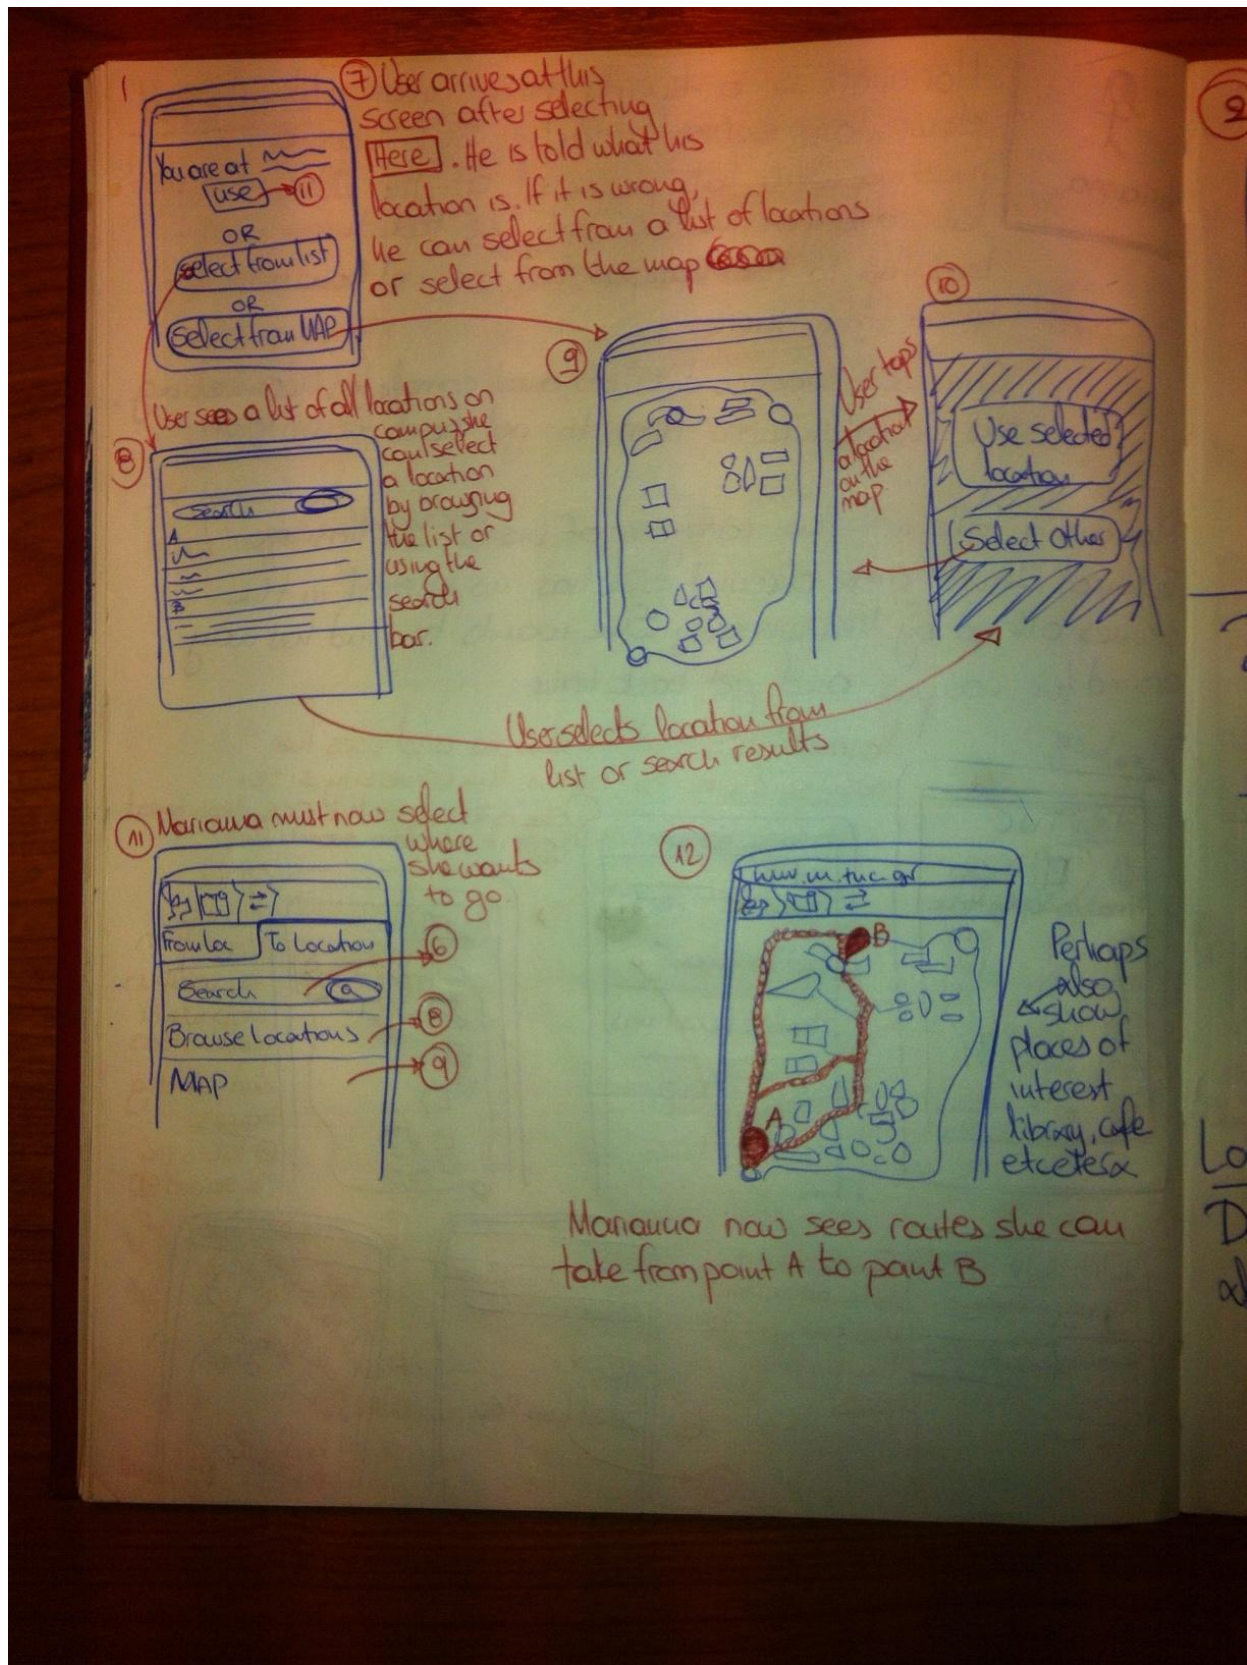 7 User arrives at this
screen after selecting
Here. He is told what his
location is. If it is wrong,
he can select from a list of locations
or select from the map
You are at
use 11
OR
select from list
OR
Select from MAP
10
9
User taps
a location
on the
map
Use selected
location
Select Other
User sees a list of all locations on
campus, she
can select
a location
by browsing
the list or
using the
search
bar.
8
Search
A
B
User selects location from
list or search results
11 Marianna must now select
where
she wants
to go.
From Loc To Location
Search 6
Browse Locations 8
MAP 9
12
B
A
Perhaps
also
show
places of
interest
library, cafe
etcetera
Marianna now sees routes she can
take from point A to point B
2
Lo
D